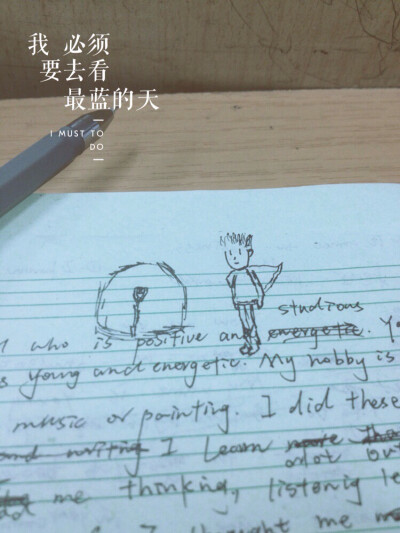 我 必须
要去看
最蓝的天
I MUST TO
DO
studious
who is positive and energetic. Yo
s young and energetic. My hobby is
music or painting. I did these
and writing I learn more
alot but
me thinking, listenig le
I thought me m